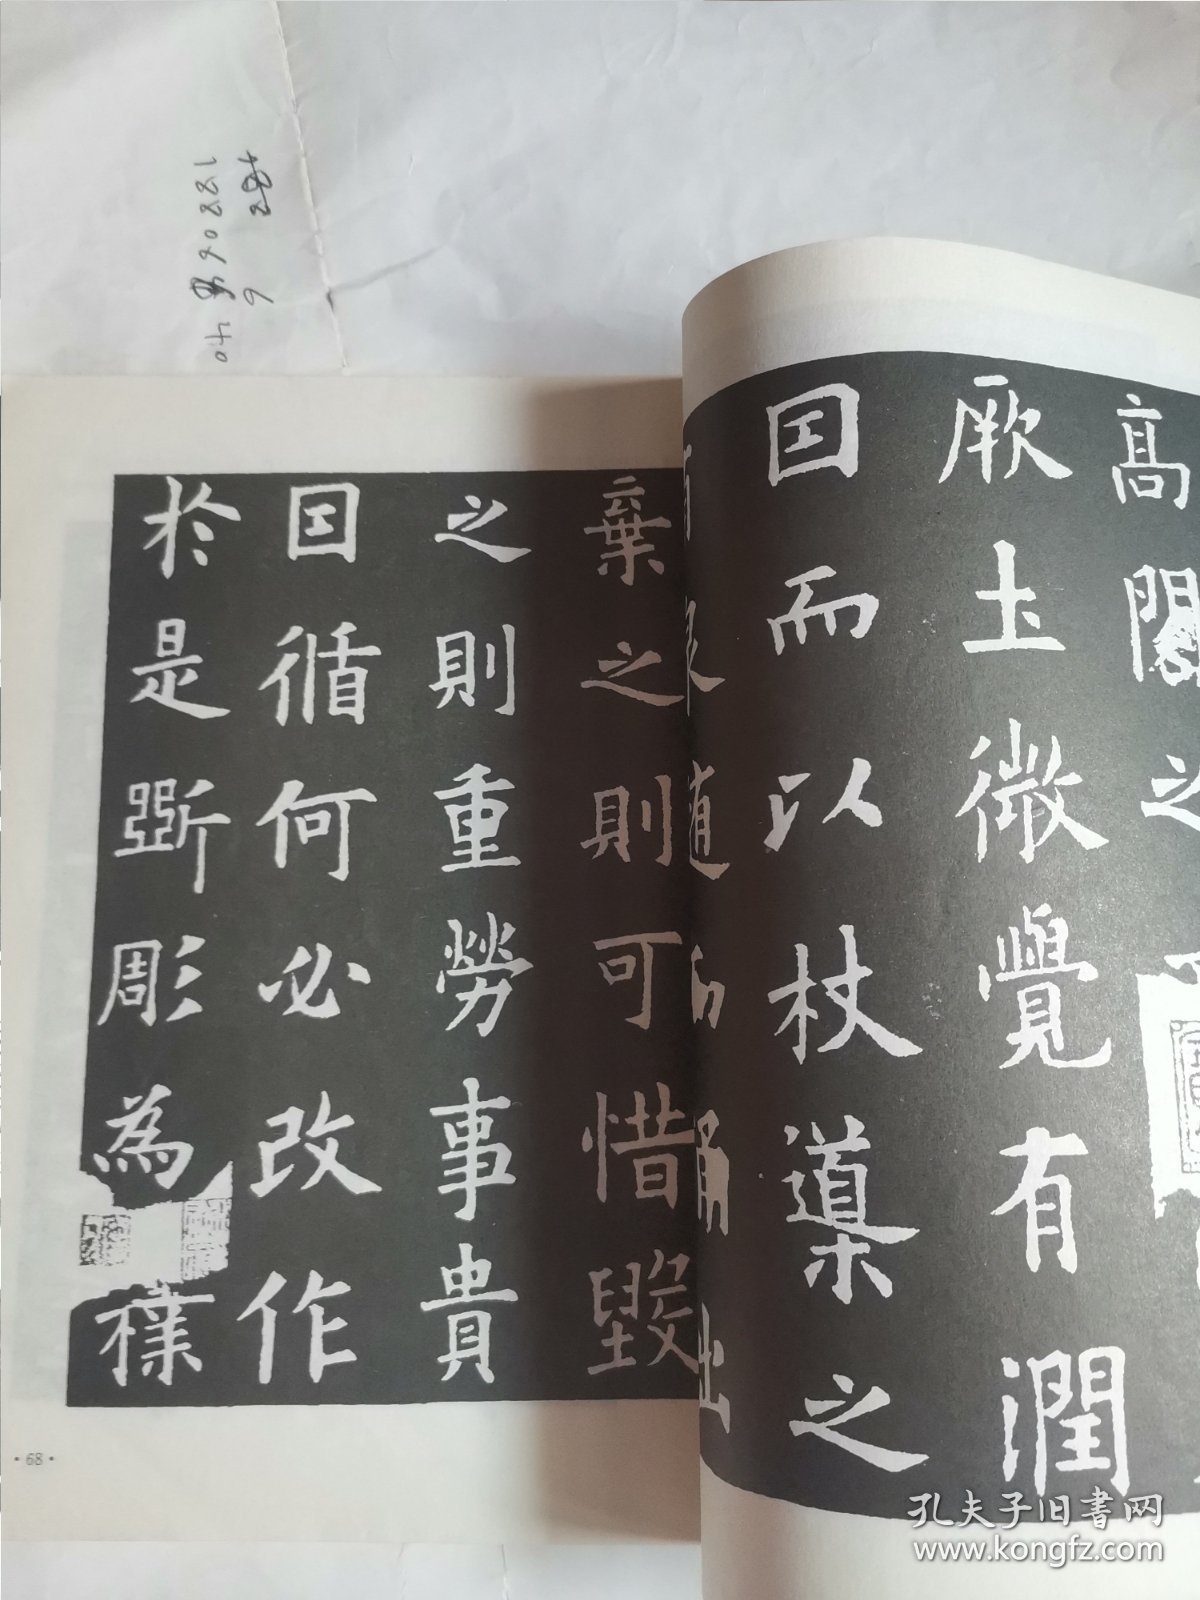 高閣之
厥土微覺有潤
因而以杖導之
有泉随而涌出
棄之則可惜毀
之則重勞事貴
因循何必改作
於是斲彫為
樸
·68·
188068 40
6
孔夫子旧书网
www.kongfz.com